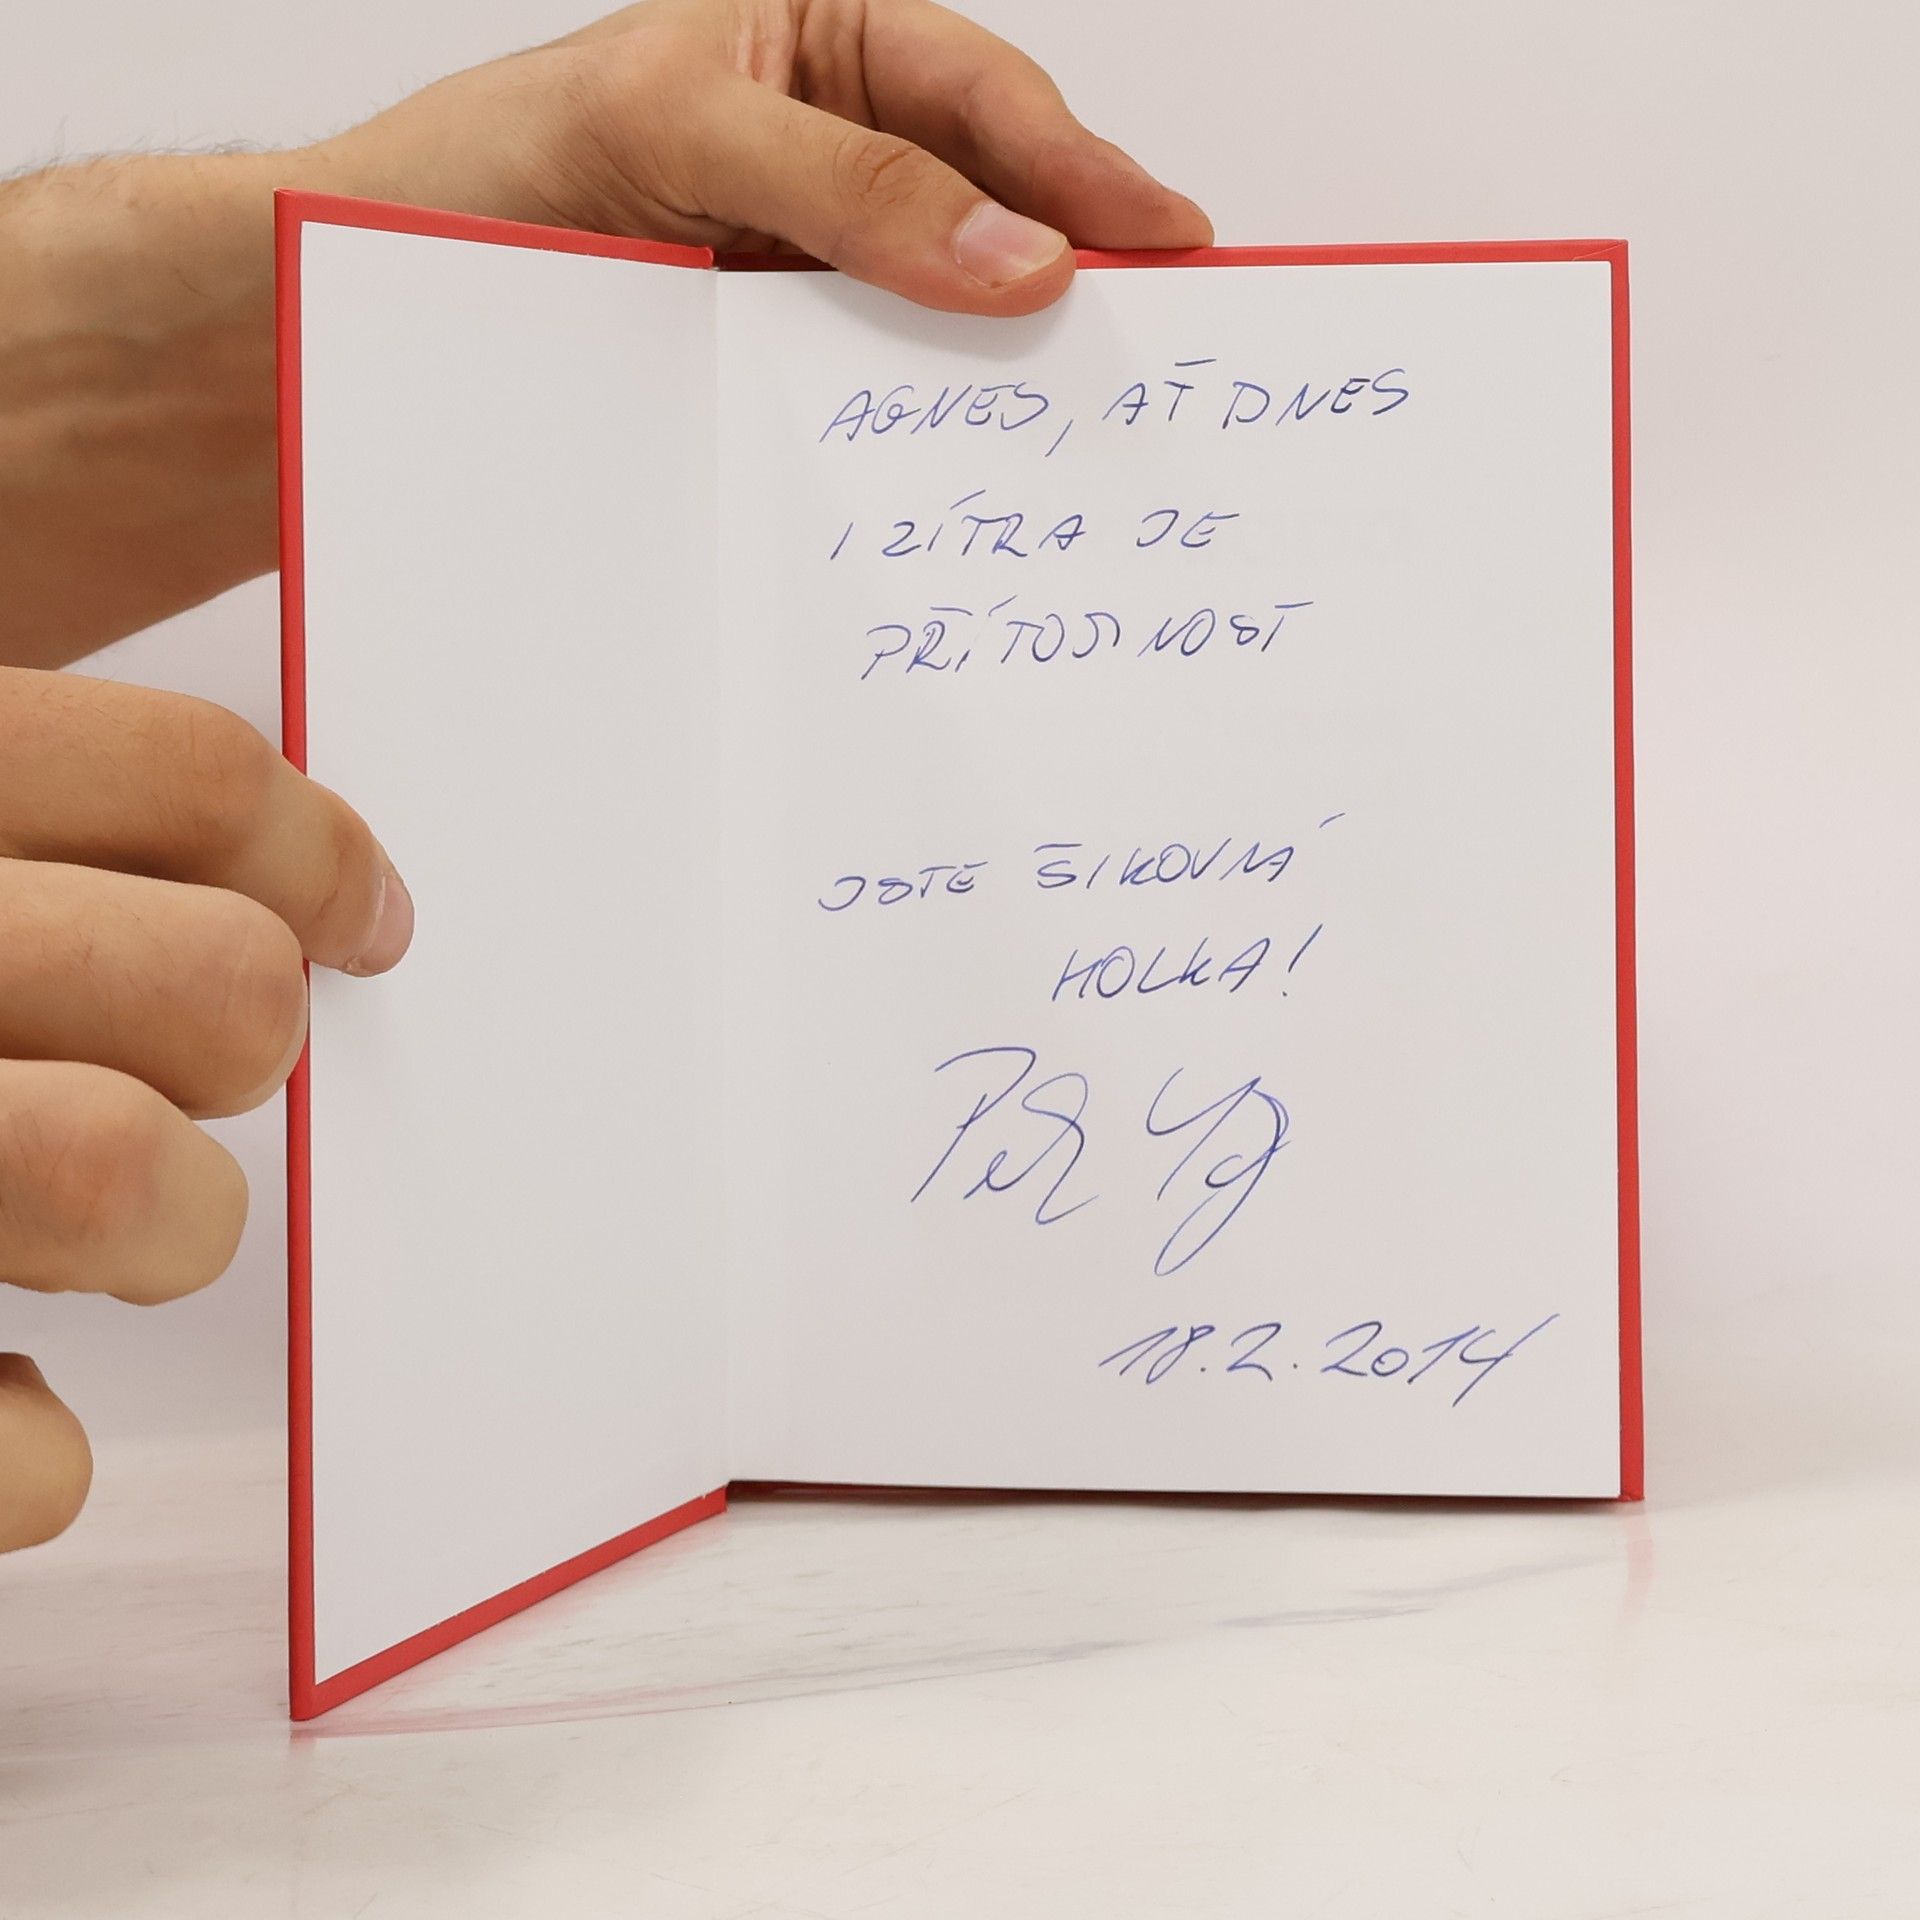 AGNES, AŤ DNES
I ZÍTRA JE
PŘÍTOMNOST
JSTE ŠIKOVNÁ
HOLKA!
18.2.2014